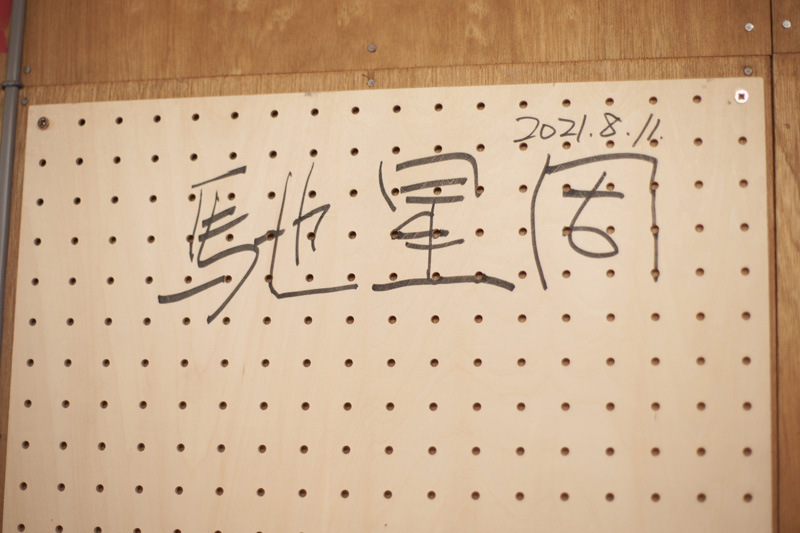 2021.8.11.
馳星周